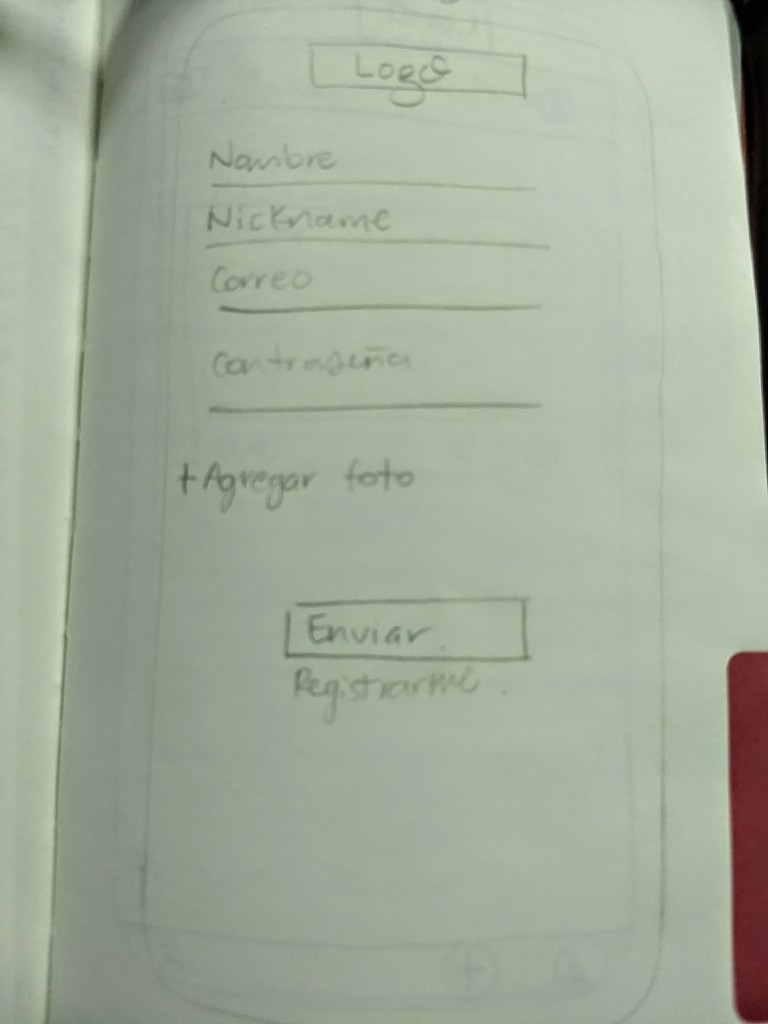 Logo
Nombre
Nickname
Correo
Contraseña
+Agregar foto
Enviar.
Registrarme.